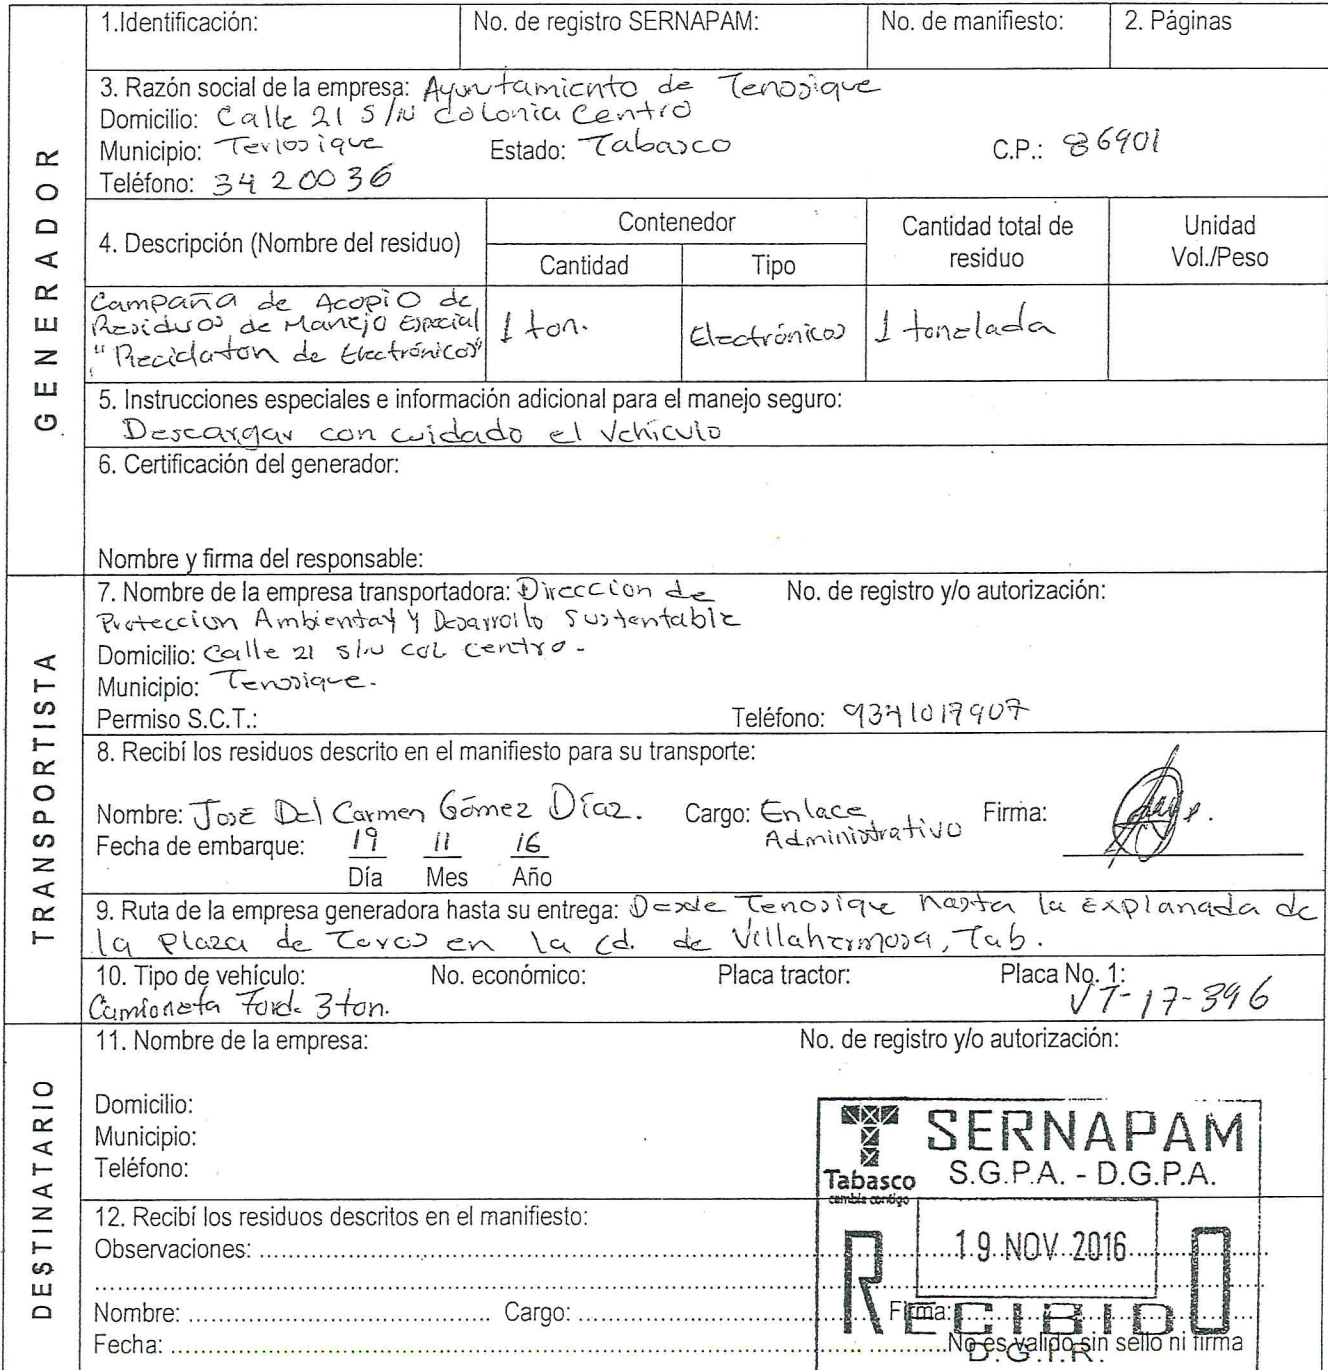 GENERADOR
1.Identificación: No. de registro SERNAPAM: No. de manifiesto: 2. Páginas
3. Razón social de la empresa: Ayuntamiento de Tenosique
Domicilio: Calle 21 S/N colonia Centro
Municipio: Tenosique Estado: Tabasco C.P.: 86901
Teléfono: 3420036
4. Descripción (Nombre del residuo) Contenedor Cantidad total de residuo Unidad Vol./Peso
Cantidad Tipo
Campaña de Acopio de
Residuos de Manejo Especial
"Reciclaton de Electrónicos"
1 ton. Electrónicos 1 tonelada
5. Instrucciones especiales e información adicional para el manejo seguro:
Descargar con cuidado el vehículo
6. Certificación del generador:
Nombre y firma del responsable:
TRANSPORTISTA
7. Nombre de la empresa transportadora: Direccion de No. de registro y/o autorización:
Proteccion Ambiental y Desarrollo Sustentable
Domicilio: Calle 21 s/n col centro.
Municipio: Tenosique.
Permiso S.C.T.: Teléfono: 9341017907
8. Recibí los residuos descrito en el manifiesto para su transporte:
Nombre: José Del Carmen Gómez Díaz. Cargo: Enlace Administrativo Firma:
Fecha de embarque: 19 11 16
Día Mes Año
9. Ruta de la empresa generadora hasta su entrega: Desde Tenosique hasta la Explanada de
la Plaza de Toros en la Cd. de Villahermosa, Tab.
10. Tipo de vehículo: No. económico: Placa tractor: Placa No. 1:
Camioneta Ford. 3 ton. VT-17-396
DESTINATARIO
11. Nombre de la empresa: No. de registro y/o autorización:
Domicilio:
Municipio:
Teléfono:
Tabasco
cambia contigo
SERNAPAM
S.G.P.A. - D.G.P.A.
12. Recibí los residuos descritos en el manifiesto:
Observaciones:
19 NOV 2016
RECIBIDO
D.G.I.R.
Nombre: Cargo: Firma:
Fecha: No es valido sin sello ni firma